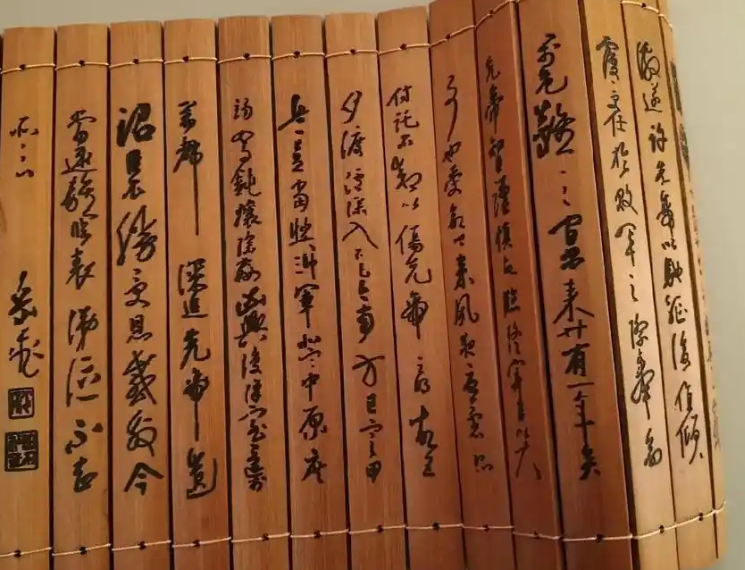 激遂許先帝以驅馳後值傾
覆受任於敗軍之際奉命
於危難之間爾來廿有一年矣
先帝知臣謹慎故臨終寄臣以大
事也受命以來夙夜憂慮恐
付託不效以傷先帝之明故五
月渡瀘深入不毛今南方已定甲
兵已足當獎帥三軍北定中原庶
竭駑鈍攘除姦凶興復漢室還於
舊都 深追先帝遺
詔臣不勝受恩感激今
當遠離臨表涕泣不知
所云 岳飛